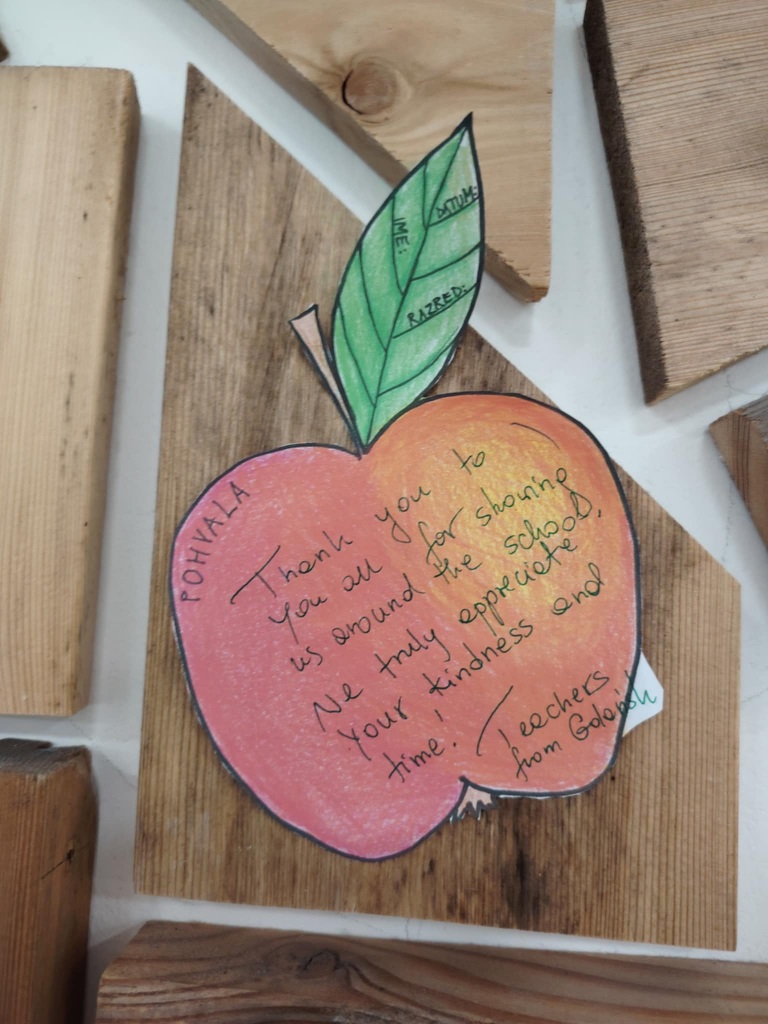 DATUM:
IME:
RAZRED:
POHVALA
Thank you to
you all for showing
us around the school.
We truly appreciate
your kindness and
time!
Teachers
from Gdańsk